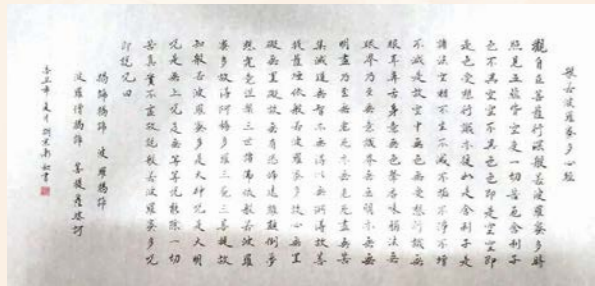 般若波羅蜜多心經
觀自在菩薩行深般若波羅蜜多時
照見五蘊皆空度一切苦厄舍利子
色不異空空不異色色即是空空即
是色受想行識亦復如是舍利子是
諸法空相不生不滅不垢不淨不增
不減是故空中無色無受想行識無
眼耳鼻舌身意無色聲香味觸法無
眼界乃至無意識界無無明亦無無
明盡乃至無老死亦無老死盡無苦
集滅道無智亦無得以無所得故菩
提薩埵依般若波羅蜜多故心無罣
礙無罣礙故無有恐怖遠離顛倒夢
想究竟涅槃三世諸佛依般若波羅
蜜多故得阿耨多羅三藐三菩提故
知般若波羅蜜多是大神咒是大明
咒是無上咒是無等等咒能除一切
苦真實不虛故說般若波羅蜜多咒
即說咒曰
揭諦揭諦 波羅揭諦
波羅僧揭諦 菩提薩婆訶
辛丑年夏月 書